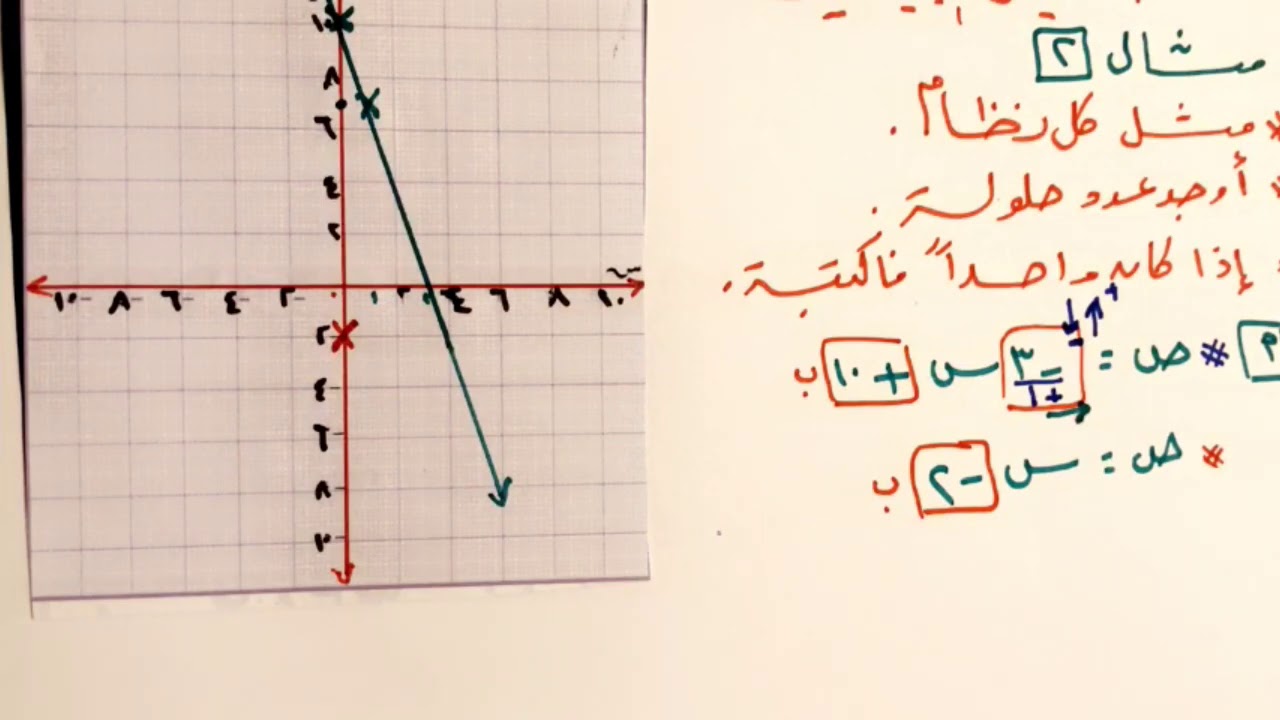 مثال ٢
* مثل كل نظام .
* أوجد عدد حلولة .
* إذا كان واحداً فاكتبة .
م * ص = -٣/+١ س + ١٠ ب
* ص = س - ٢ ب
١٠
٨
٦
٤
٢
١٠ ٨ ٦ ٤ ٢ ٠ ١ ٢ ٤ ٦ ٨ ١٠ س
٢
٤
٦
٨